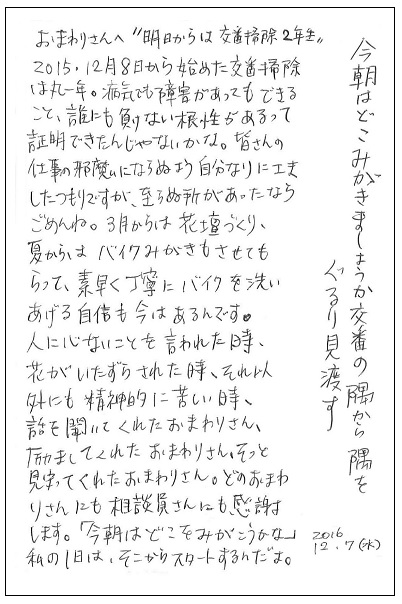 おまわりさんへ "明日からは交番掃除2年生"
2015.12月8日から始めた交番掃除
は丸一年。病気でも障害があってもできる
こと、誰にも負けない根性があるって
証明できたんじゃないかな。皆さんの
仕事の邪魔にならぬよう自分なりに工夫
したつもりですが、至らぬ所があったなら
ごめんね。3月からは花壇づくり、
夏からはバイクみがきもさせても
らって、素早く丁寧にバイクを洗い
あげる自信も今はあるんです。
人に心ないことを言われた時、
花がいたずらされた時、それ以
外にも精神的に苦しい時、
話を聞いてくれたおまわりさん、
励ましてくれたおまわりさん、そっと
見守ってくれたおまわりさん。どのおまわ
りさんにも相談員さんにも感謝
します。「今朝はどこをみがこうかな」
私の1日は、そこからスタートするんだよ。
今朝はどこみがきましょうか交番の隅から隅を
ぐるり見渡す
2016
12.7(水)